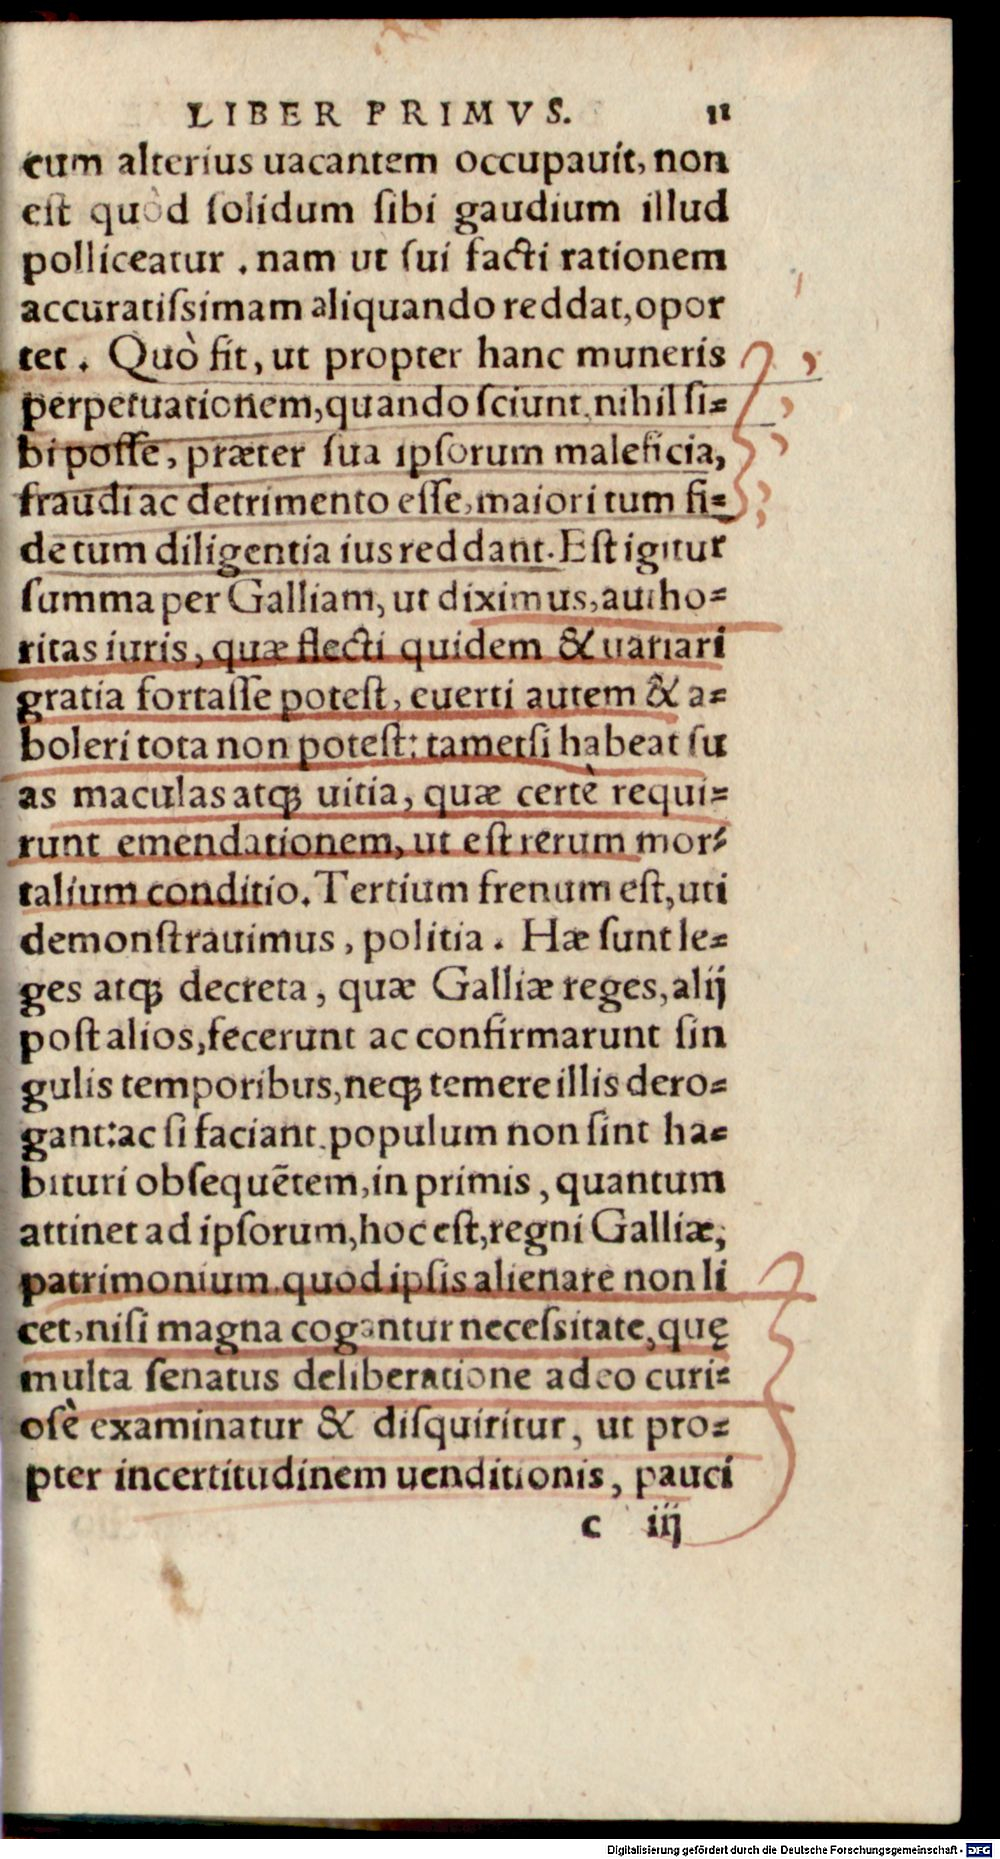 LIBER PRIMVS. 11
cum alterius uacantem occupauit, non
est quòd solidum sibi gaudium illud
polliceatur . nam ut sui facti rationem
accuratissimam aliquando reddat, opor
tet . Quò fit, ut propter hanc muneris
perpetuationem, quando sciunt, nihil si=
bi posse, præter sua ipsorum maleficia,
fraudi ac detrimento esse, maiori tum fi=
de tum diligentia ius reddant. Est igitur
summa per Galliam, ut diximus, autho=
ritas iuris, quæ flecti quidem & uariari
gratia fortasse potest, euerti autem & a=
boleri tota non potest: tametsi habeat su
as maculas atq; uitia, quæ certè requi=
runt emendationem, ut est rerum mor=
talium conditio. Tertium frenum est, uti
demonstrauimus, politia . Hæ sunt le=
ges atq; decreta, quæ Galliæ reges, alij
post alios, fecerunt ac confirmarunt sin
gulis temporibus, neq; temere illis dero=
gant: ac si faciant, populum non sint ha=
bituri obsequẽtem, in primis, quantum
attinet ad ipsorum, hoc est, regni Galliæ,
patrimonium, quod ipsis alienare non li
cet, nisi magna cogantur necessitate, quę
multa senatus deliberatione adeo curi=
osè examinatur & disquiritur, ut pro=
pter incertitudinem uenditionis, pauci
c iij
Digitalisierung gefördert durch die Deutsche Forschungsgemeinschaft - DFG